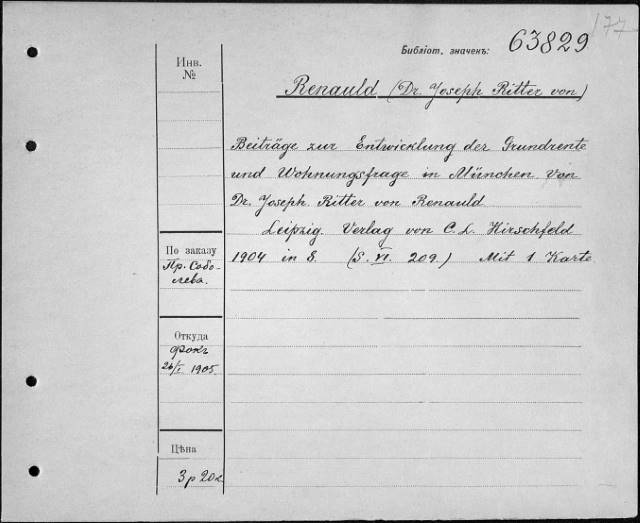 177
Библіот. значекъ: 63829
Инв.
№
Renauld (Dr. Joseph Ritter von)
Beiträge zur Entwicklung der Grundrente
und Wohnungsfrage in München von
Dr. Joseph Ritter von Renauld
Leipzig. Verlag von C. L. Hirschfeld
1904 in 8. (S. VI. 209.) Mit 1 Karte
По заказу
Пр. Собо-
лева.
Откуда
Фокъ
26/I. 1905.
Цѣна
3 р 20 к